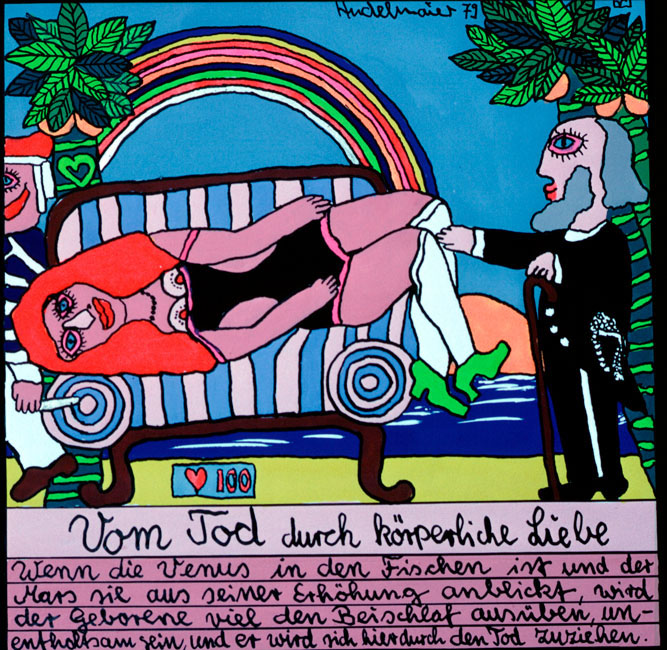 Andelmaier 79
100
Vom Tod durch körperliche Liebe
Wenn die Venus in den Fischen ist und der
Mars sie aus seiner Erhöhung anblickt, wird
der Geborene viel den Beischlaf ausüben, un-
enthaltsam sein, und er wird sich hierdurch den Tod zuziehen.